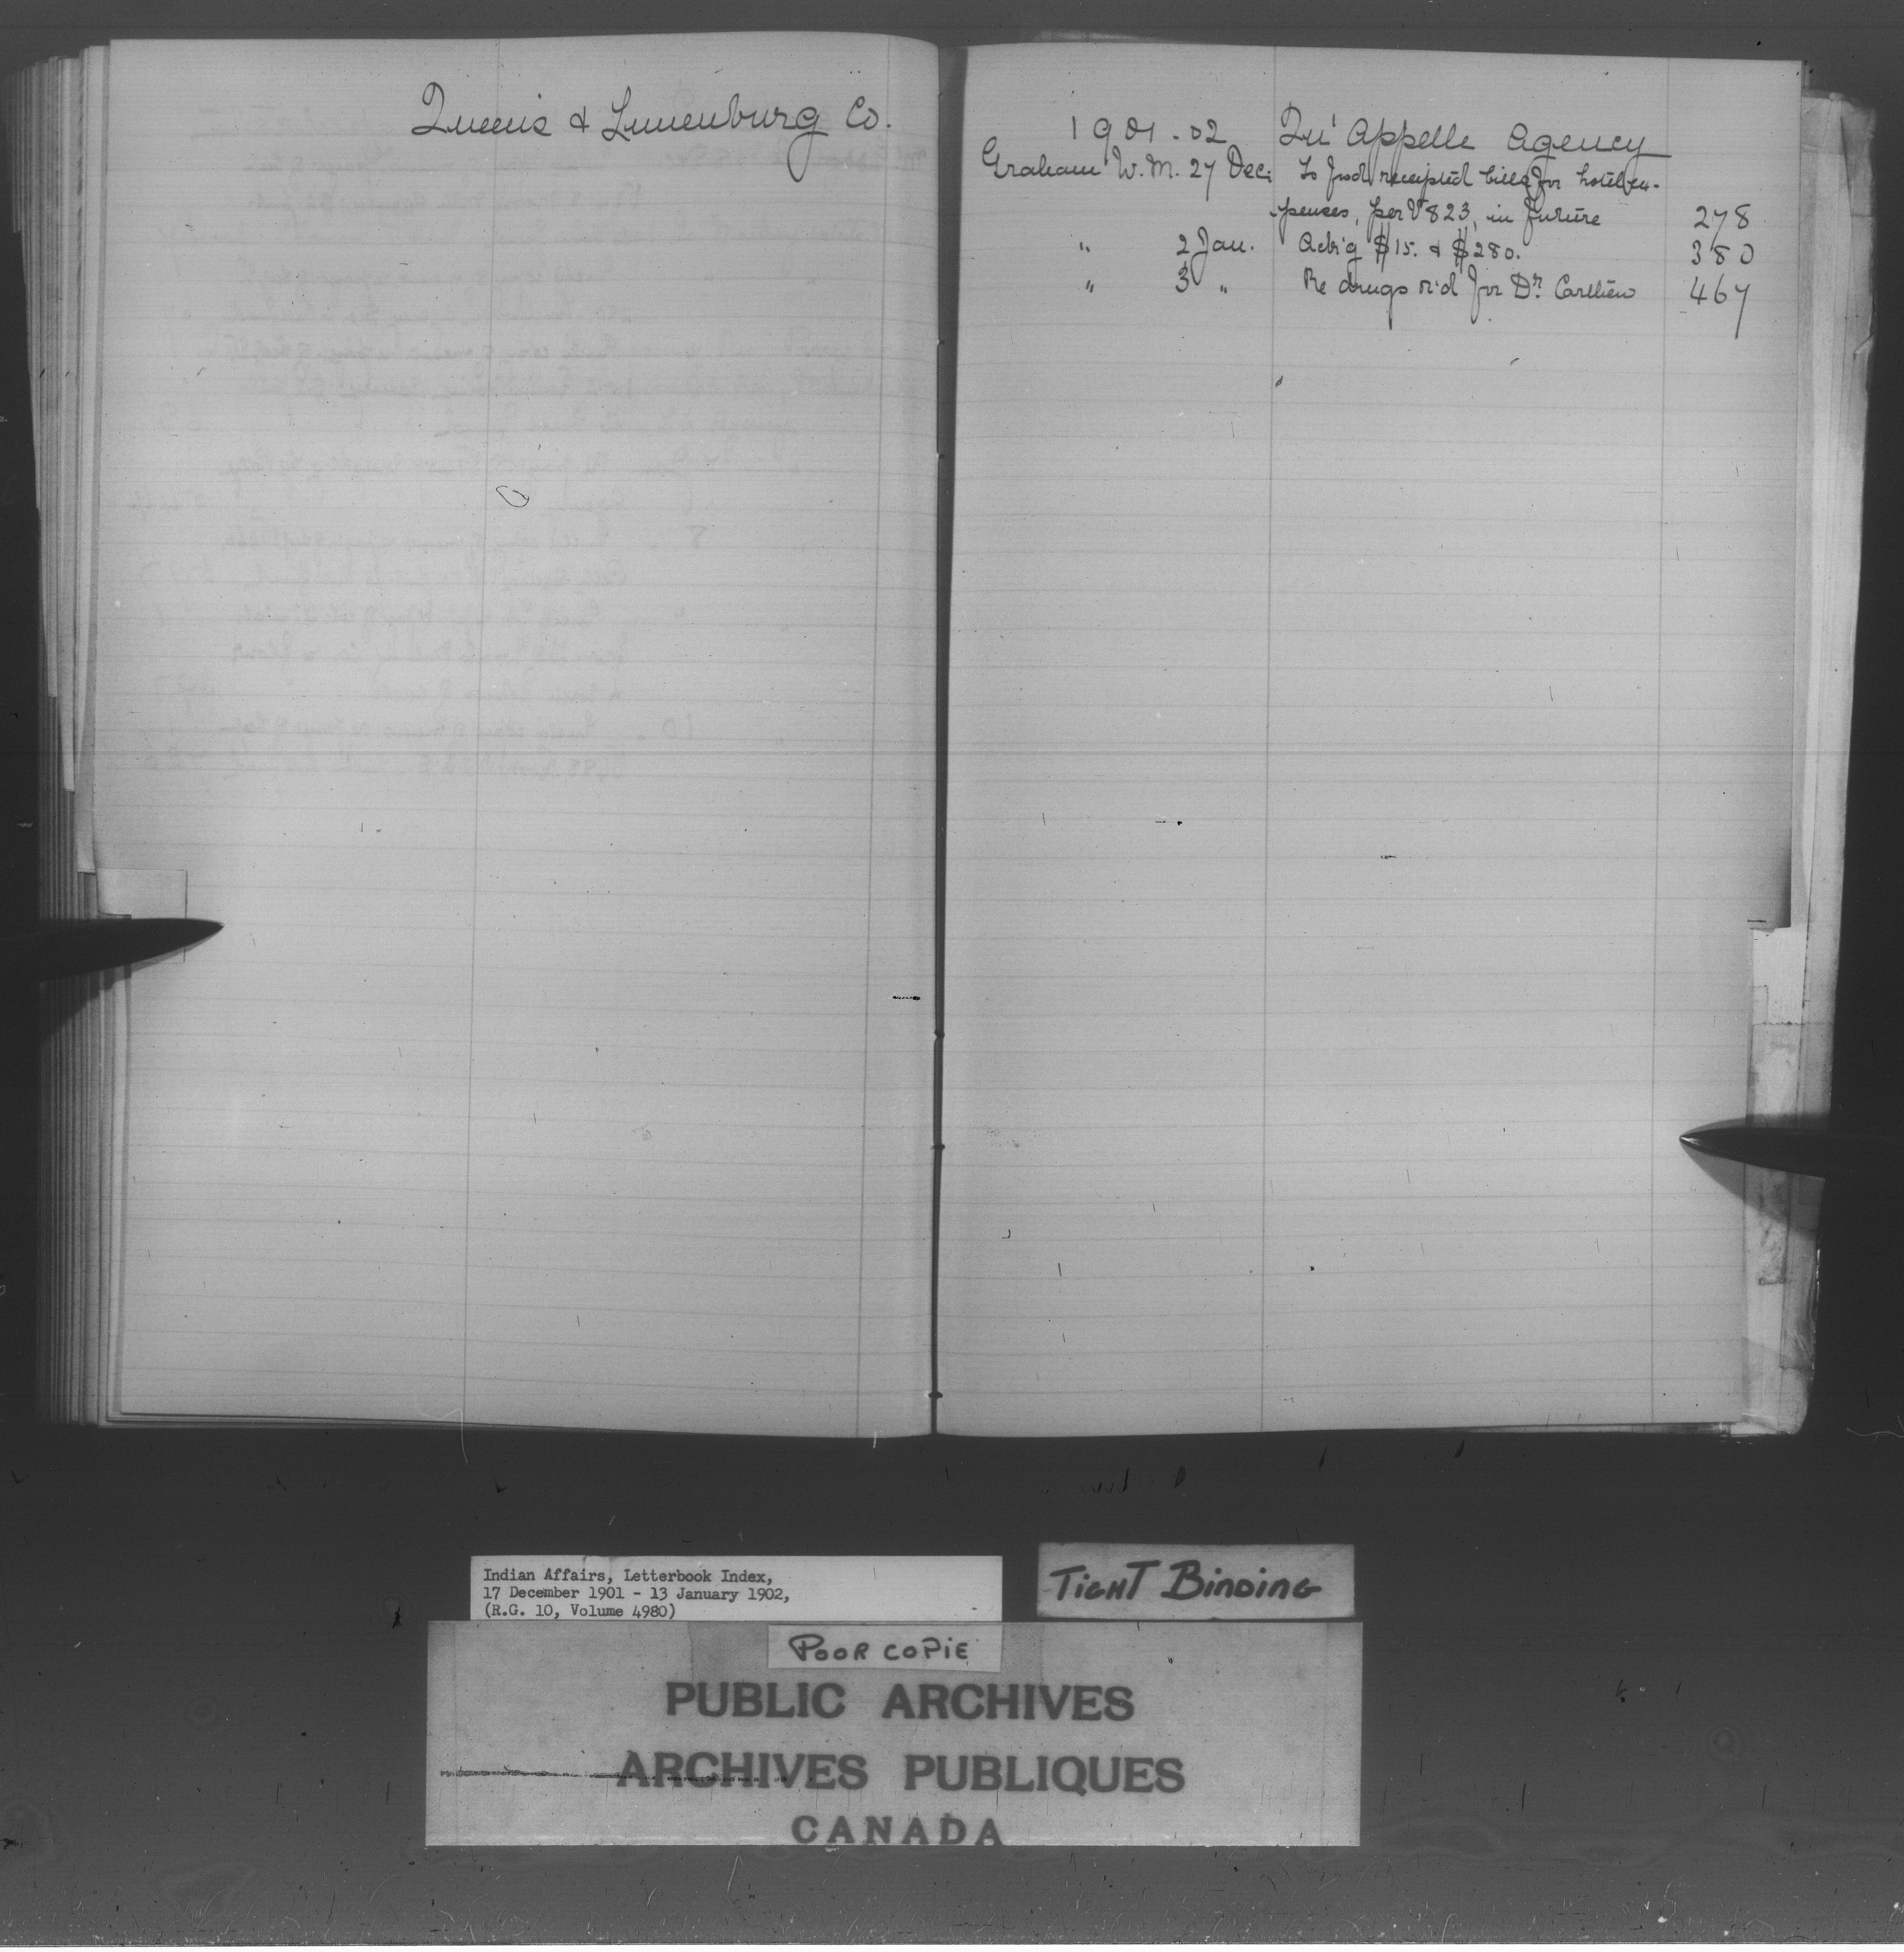 Queens & Lunenburg Co.
1901-02 Qu'Appelle Agency
Graham W.M. 27 Dec. To frwd receipted bills for hotel ex-
penses, per V 823, in future 278
" 2 Jan. Ack'g $15. & $280. 380
" 3 " Re drugs r'd for Dr. 467
Indian Affairs, Letterbook Index,
17 December 1901 - 13 January 1902,
(R.G. 10, Volume 4980)
TIGHT BINDING
POOR COPIE
PUBLIC ARCHIVES
ARCHIVES PUBLIQUES
CANADA